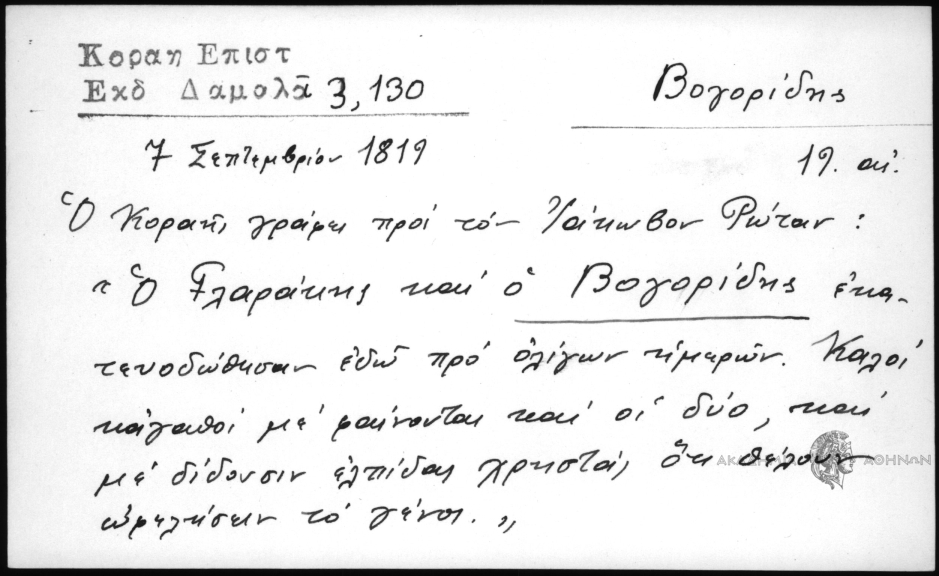 Κοραη Επιστ
Εκδ Δαμαλᾶ 3, 130
Βογορίδης
7 Σεπτεμβρίου 1819
19. αἰ.
Ὁ Κοραῆς γράφει πρὸς τὸν Ἰάκωβον Ρώταν :
« Ὁ Γλαράκης καὶ ὁ Βογορίδης ἐκα-
τευοδώθησαν ἐδῶ πρὸ ὀλίγων ἡμερῶν. Καλοὶ
κἀγαθοὶ μὲ φαίνονται καὶ οἱ δύο, καὶ
μὲ δίδουσιν ἐλπίδας χρηστὰς ὅτι θέλουν
ὠφελήσειν τὸ γένος. »
ΑΚΑΔΗΜΙΑ ΑΘΗΝΩΝ